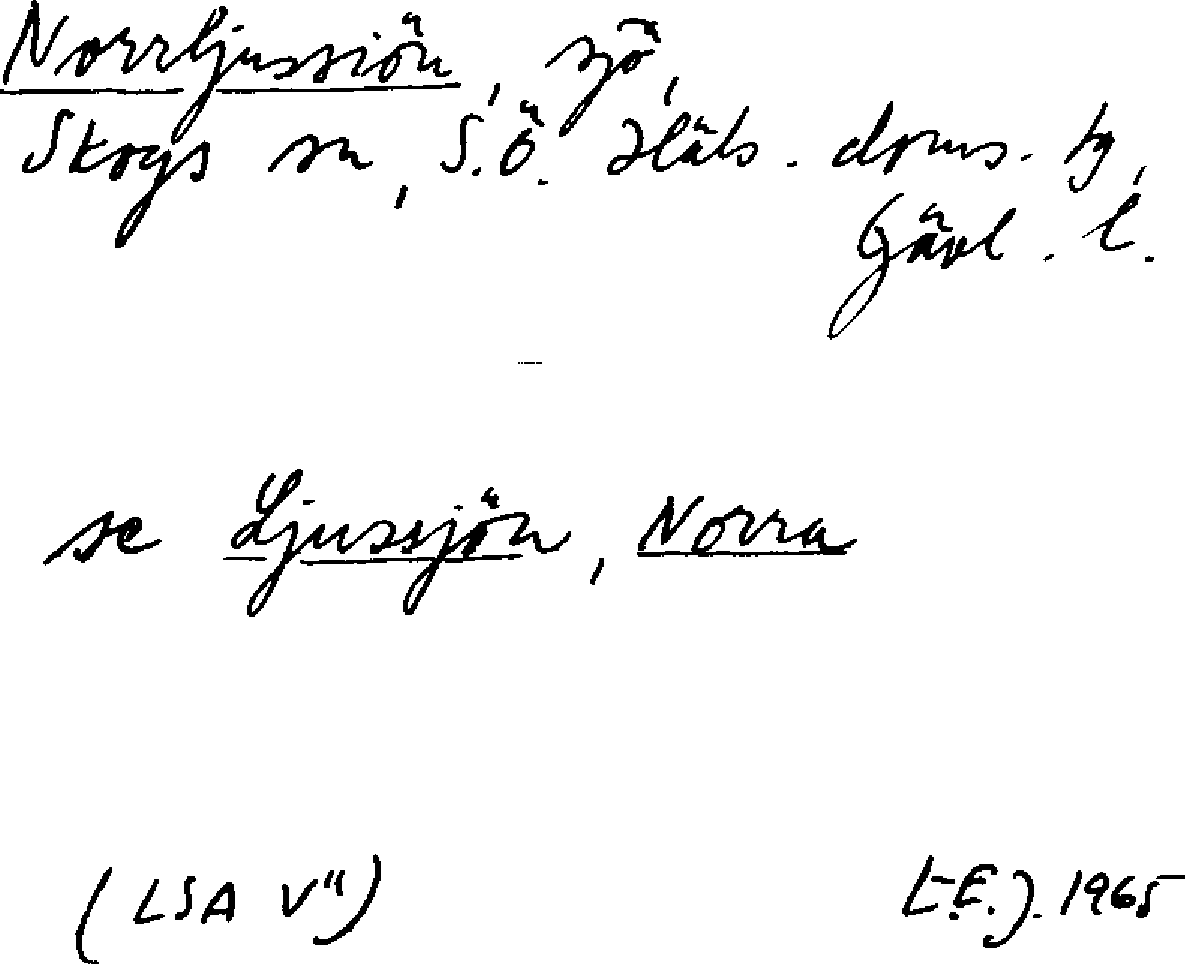 Norrljussiön, sjö,
Skogs sn, S.Ö. Häls. doms. tg,
Gävl. l.
se Ljussjön, Norra
(LSA V")
L-E.J. 1965